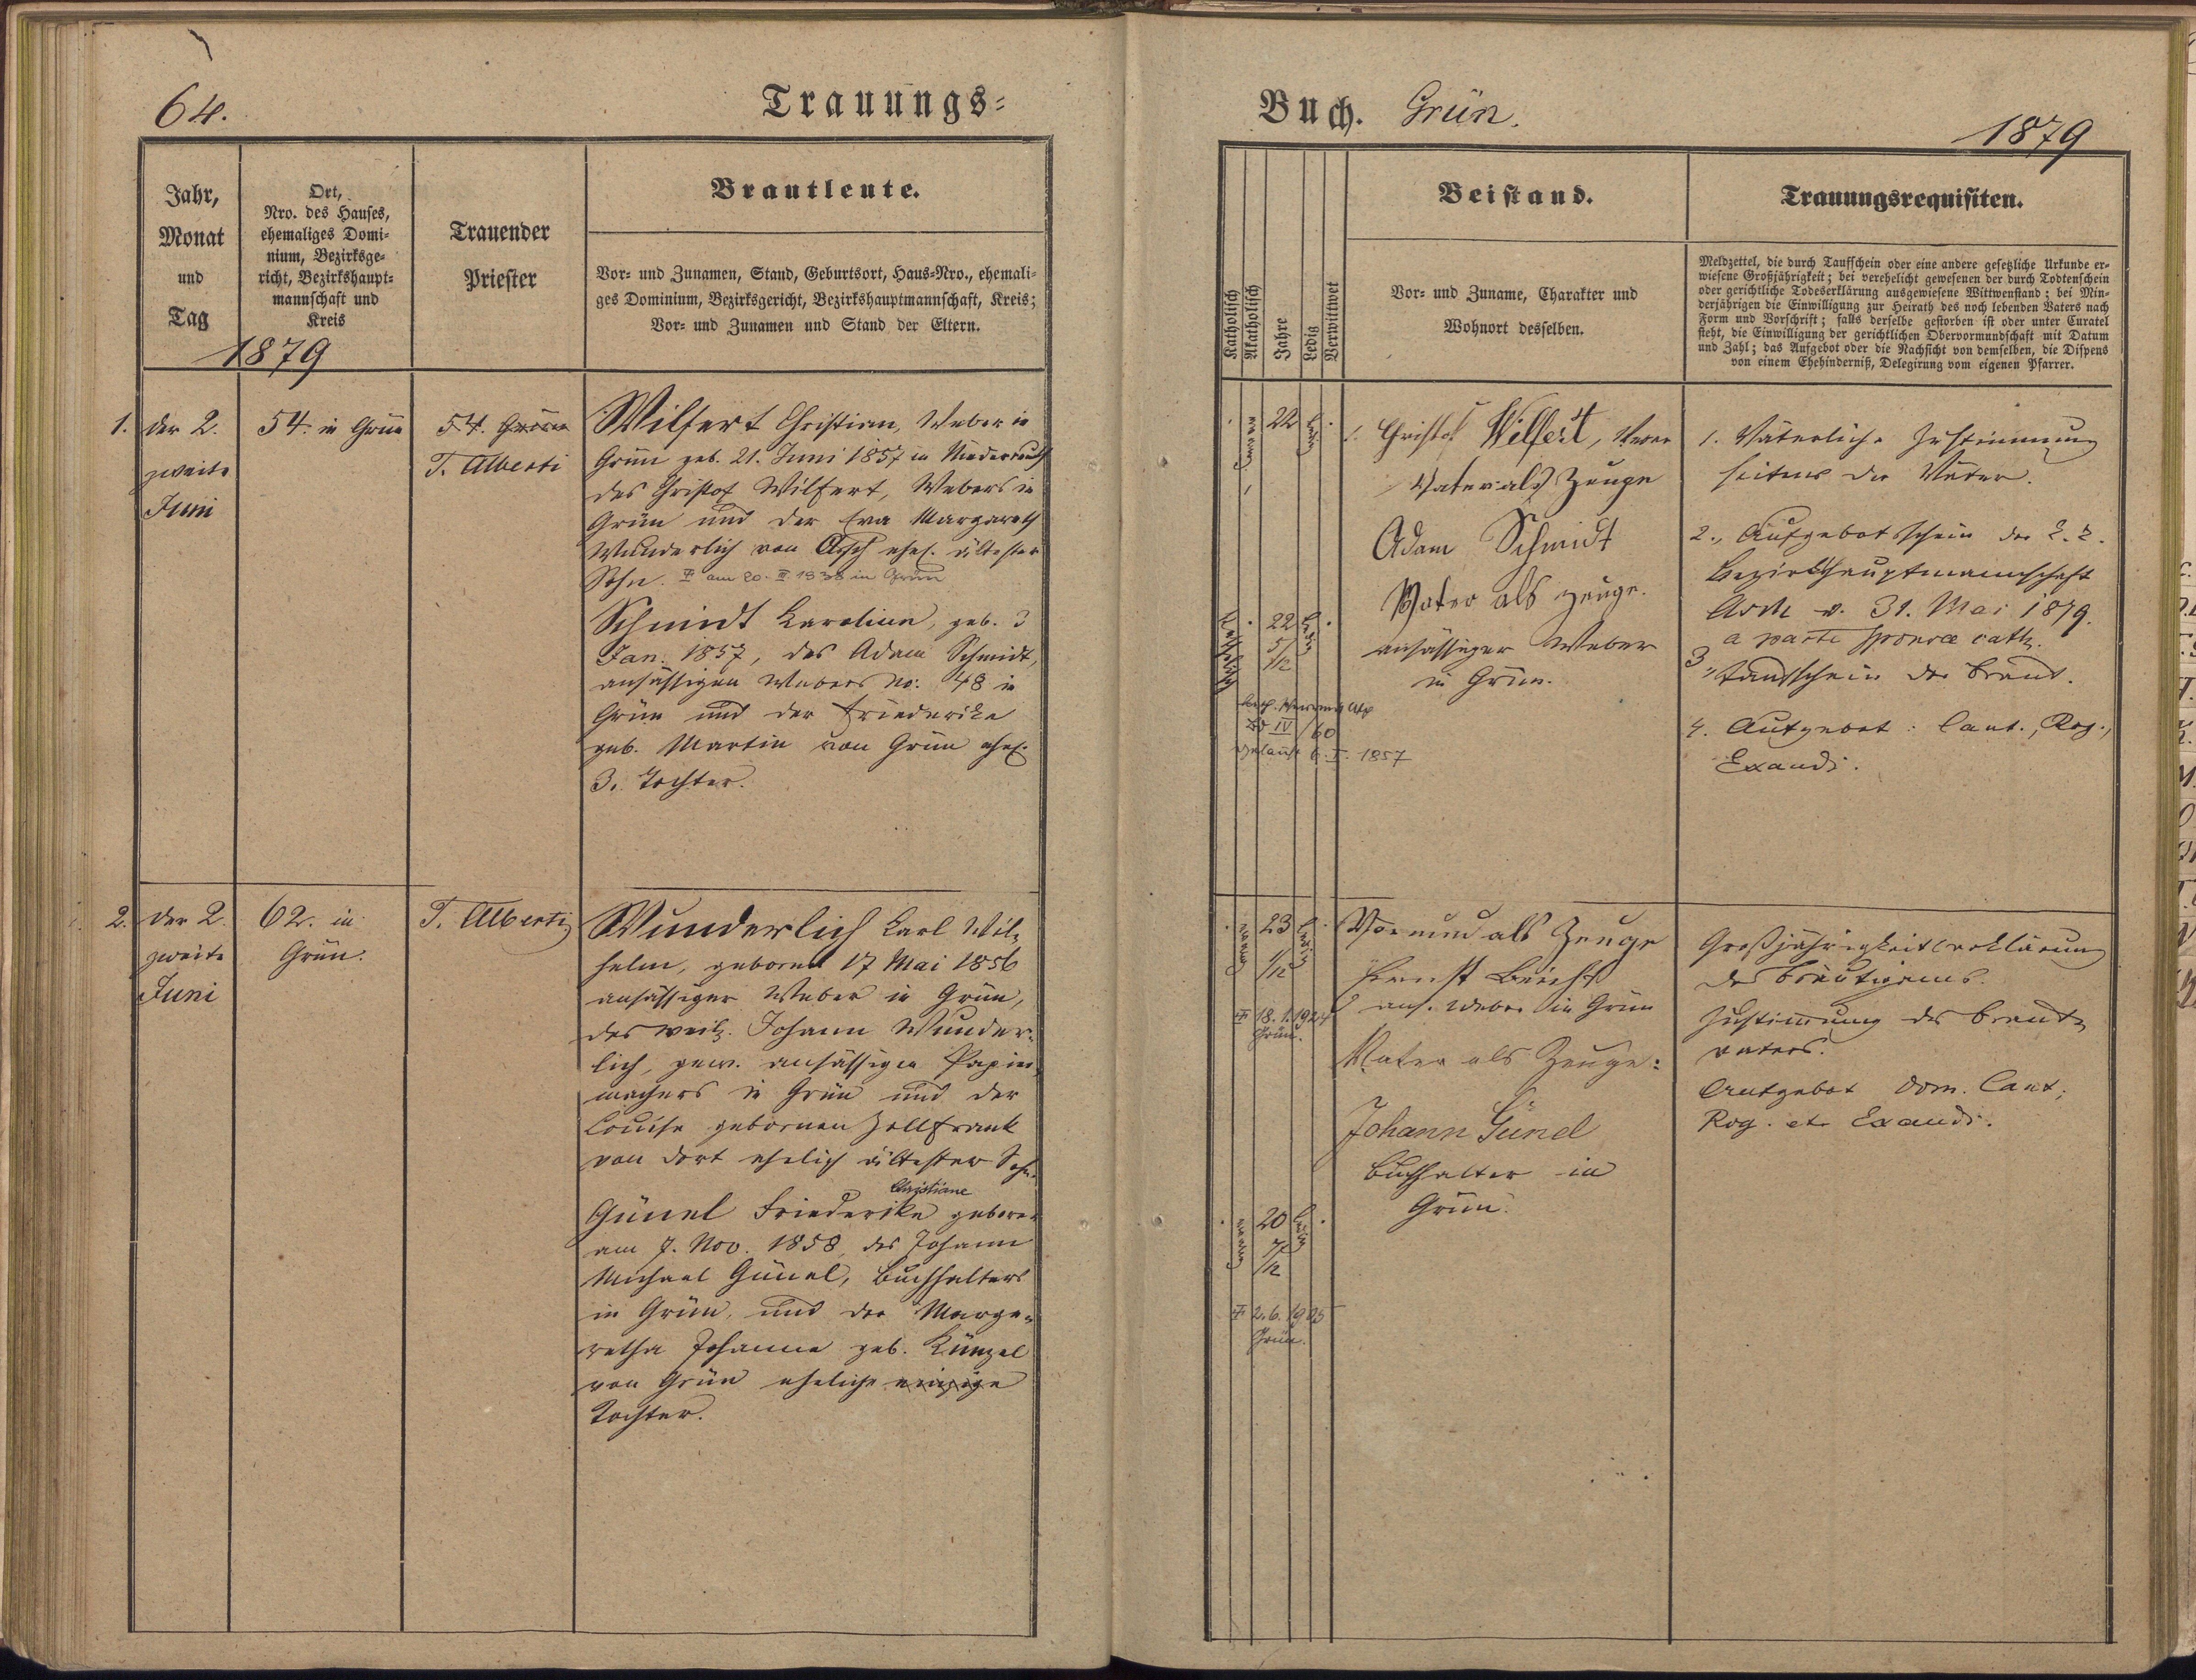 64.
Trauungs=
Jahr,
Monat
und
Tag
Ort,
Nro. des Hauses,
ehemaliges Domi=
nium, Bezirksge=
richt, Bezirkshaupt=
mannschaft und
Kreis
1879
Trauender
Priester
Brautleute.
Vor= und Zunamen, Stand, Geburtsort, Haus=Nro., ehemali=
ges Dominium, Bezirksgericht, Bezirkshauptmannschaft, Kreis;
Vor= und Zunamen und Stand der Eltern.
1. den 2.
zweite
Juni
54. in Grün
54. Grün
T. Alberti
Wilfert Christian, Weber in
Grün geb. 21. Juni 1857 in Niederreuth
des Christof Wilfert, Webers in
Grün und der Eva Margareth
Wunderlich von Asch ehel. ältester
Sohn. am 20. III 1938 in Grün
Schmidt Karoline, geb. 3
Jan. 1857, des Adam Schmidt,
ansässigen Webers No. 48 in
Grün und der Friederike
geb. Martin von Grün ehel.
3. Tochter.
2. den 2.
zweite
Juni
62. in
Grün.
T. Alberti
Wunderlich Karl Wil=
helm, geboren 17 Mai 1856
ansässiger Weber in Grün,
des weil. Johann Wunder=
lich, gew. ansässigen Papier
machers in Grün und der
Louise gebornen Zollfrank
von dort ehelich ältester Sohn.
Christiane
Günel Friederike geboren
am 7. Nov. 1858, des Johann
Michael Günel, Buchhalters
in Grün, und der Marga=
retha Johanna geb. Künzel
von Grün eheliche einzige
Tochter.
Buch. Grün.
1879
Katholisch
Akatholisch
Jahre
Ledig
Verwittwet
Beistand.
Vor= und Zuname, Charakter und
Wohnort desselben.
Trauungsrequisiten.
Meldzettel, die durch Taufschein oder eine andere gesetzliche Urkunde er=
wiesene Großjährigkeit; bei verehelicht gewesenen der durch Todtenschein
oder gerichtliche Todeserklärung ausgewiesene Wittwenstand; bei Min=
derjährigen die Einwilligung zur Heirath des noch lebenden Vaters nach
Form und Vorschrift; falls derselbe gestorben ist oder unter Curatel
steht, die Einwilligung der gerichtlichen Obervormundschaft mit Datum
und Zahl; das Aufgebot oder die Nachsicht von demselben, die Dispens
von einem Ehehinderniß, Delegirung vom eigenen Pfarrer.
22
ledig
Christof Wilfert, Weber
Vater als Zeuge
Adam Schmidt
Vater als Zeuge.
ansässiger Weber
in Grün.
katholisch
22
5/12
ledig
IV/60
getauft 6. I. 1857
1. Väterliche Zustimmung
seitens der Väter.
2., Aufgebotsschein der k. k.
Bezirkshauptmannschaft
Asch v. 31. Mai 1879.
a parte sponsae cath.
3., Taufschein der Braut.
4. Aufgebot: Cant., Rog.,
Exaudi.
23
1/12
ledig
18.1.1924
Grün.
Vormund als Zeuge
Ernst
ans. Weber in Grün
Vater als Zeuge:
Johann Günel
Buchhalter in
Grün.
20
7/12
ledig
2.6.1925
Grün.
Großjährigkeitserklärung
des Bräutigams.
Zustimmung des Braut=
vaters.
Aufgebot Dom. Cant.,
Rog. et Exaudi.